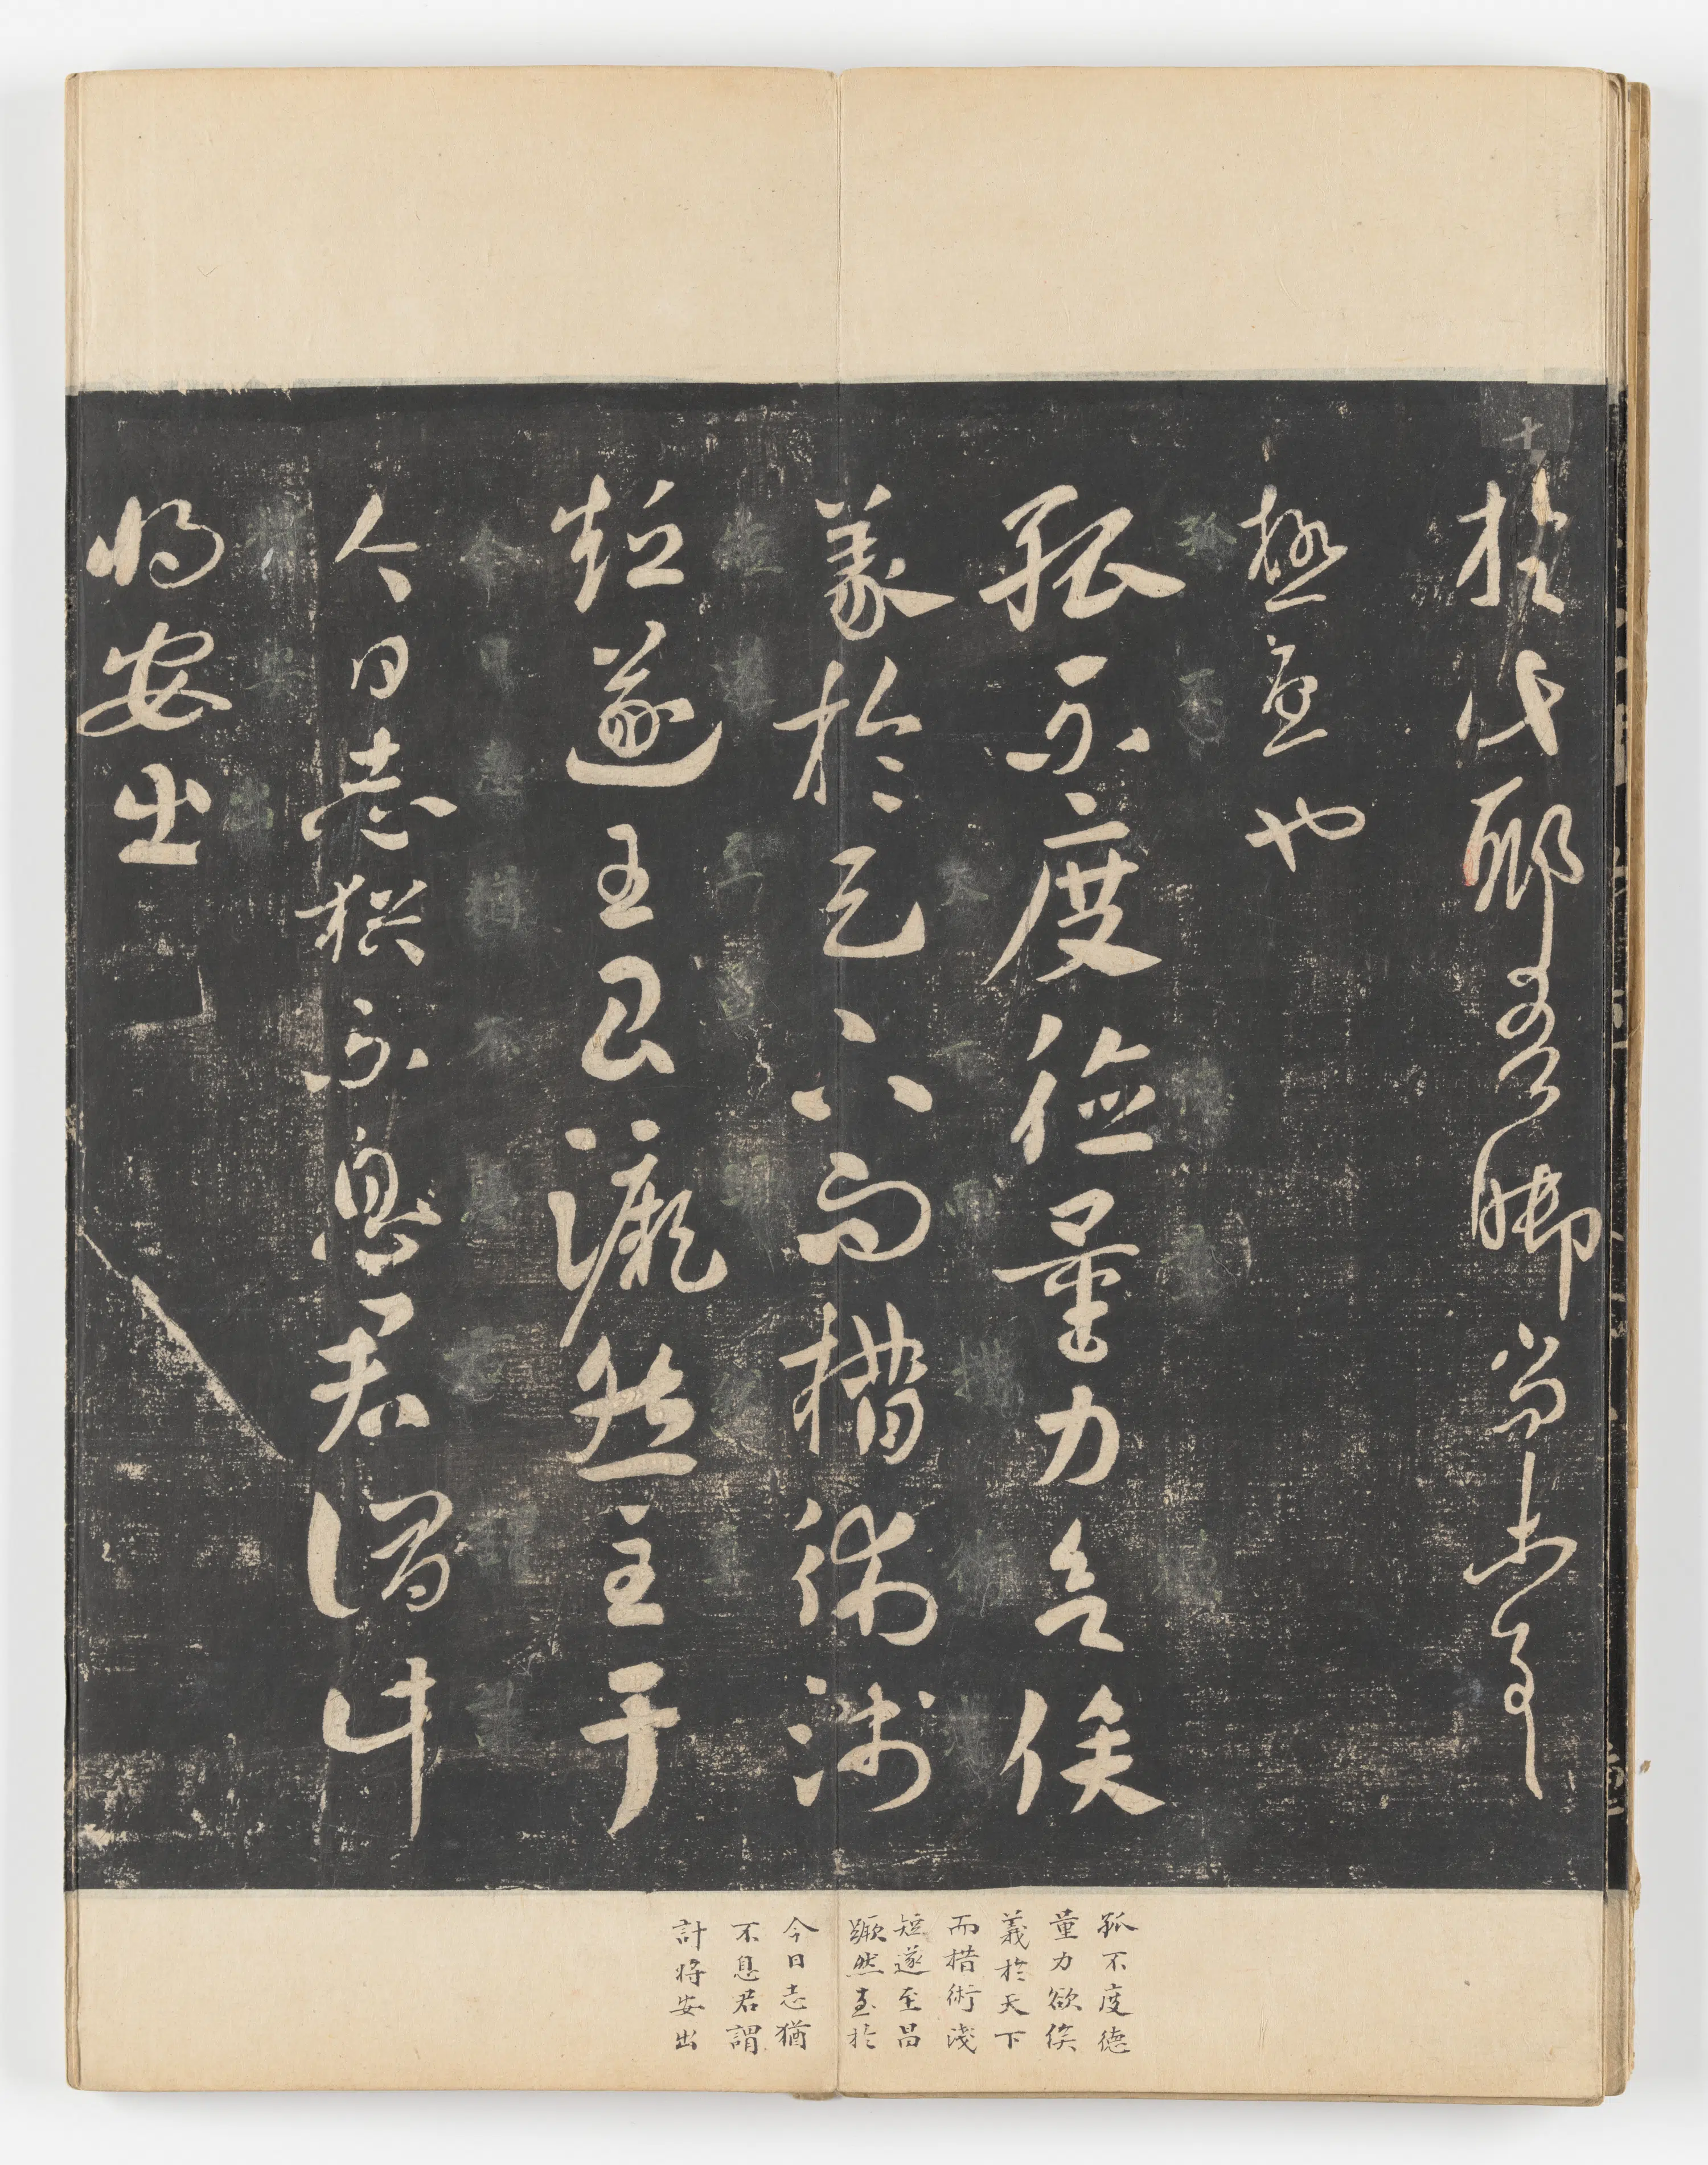 十
於
也
孤不度德量力欲俟
義於天下而措術淺
短遂至昌蹶然至于
今日志猶不息君謂計
將安出
孤不度德
量力欲俟
義於天下
而措術淺
短遂至昌
蹶然至於
今日志猶
不息君謂
計將安出